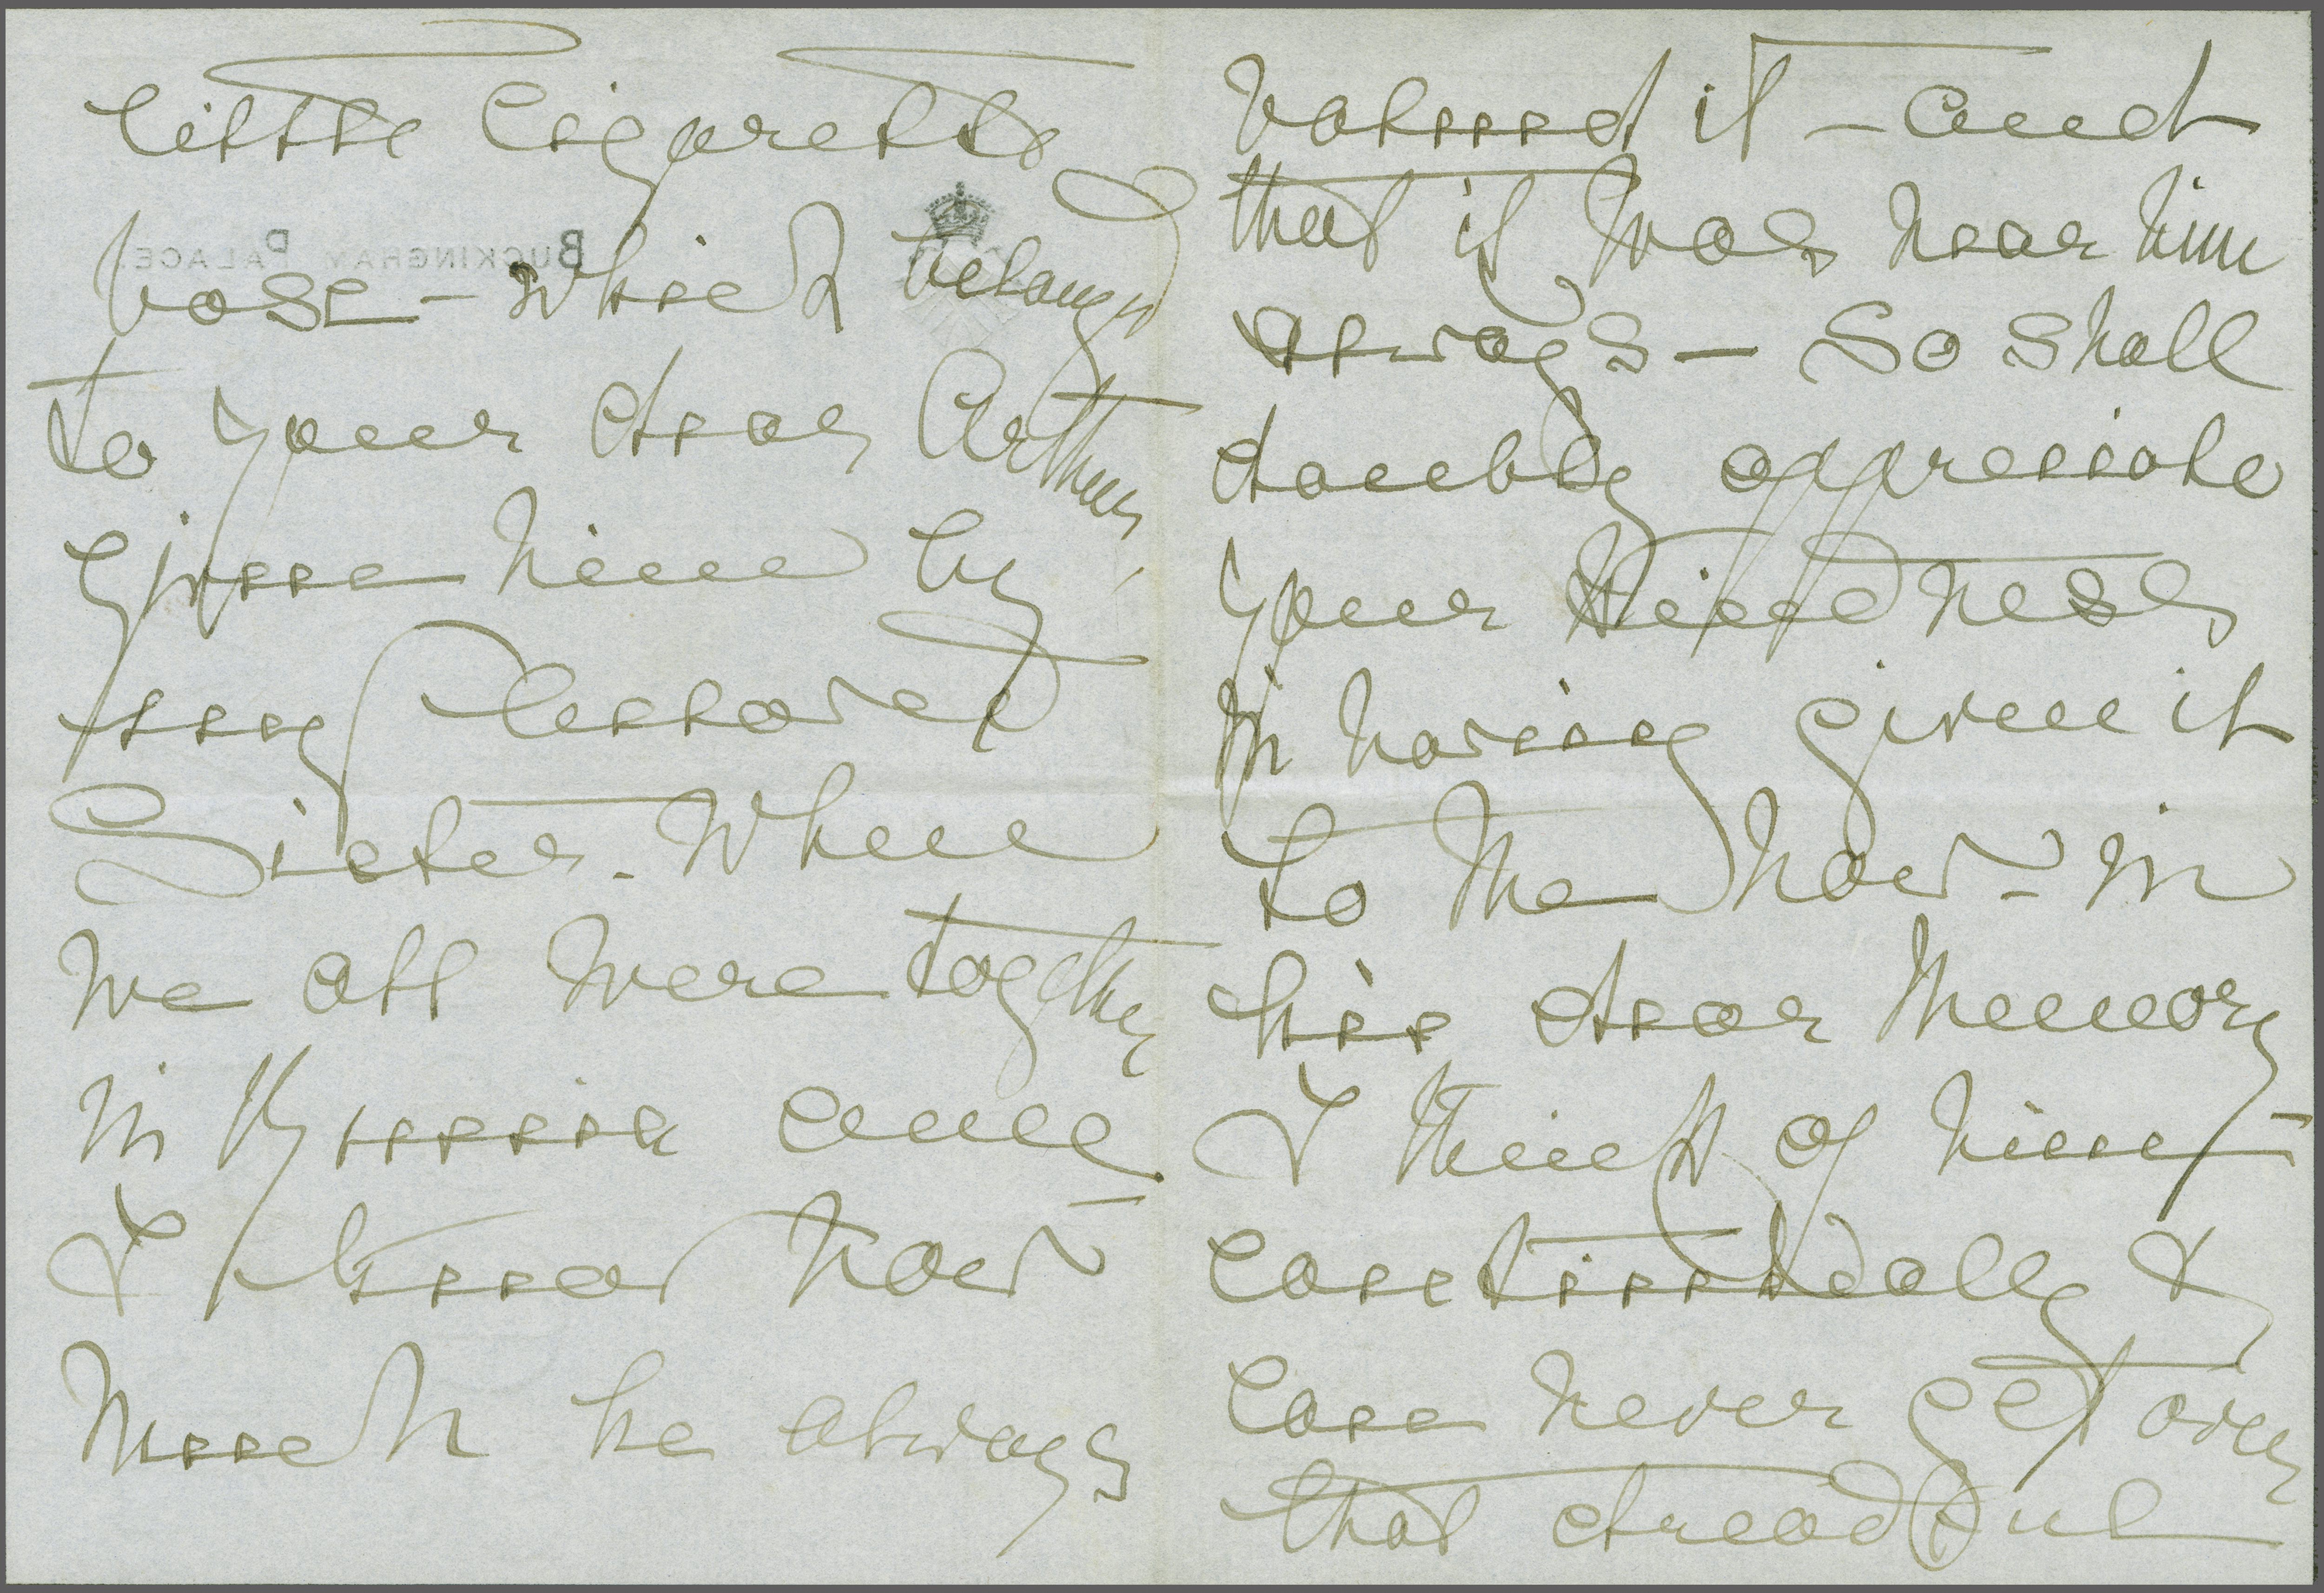 little Cigarette
BUCKINGHAM PALACE.
case – which belonged
to your dear Arthur
given him by
my beloved
Sister. When
we all were together
in Russia and
I know how
much he always
valued it – and
that it was near him
always – So shall
doubly appreciate
your kindness
in having given it
to me now – in
his dear memory
I think of him
continually &
can never get over
that dreadful